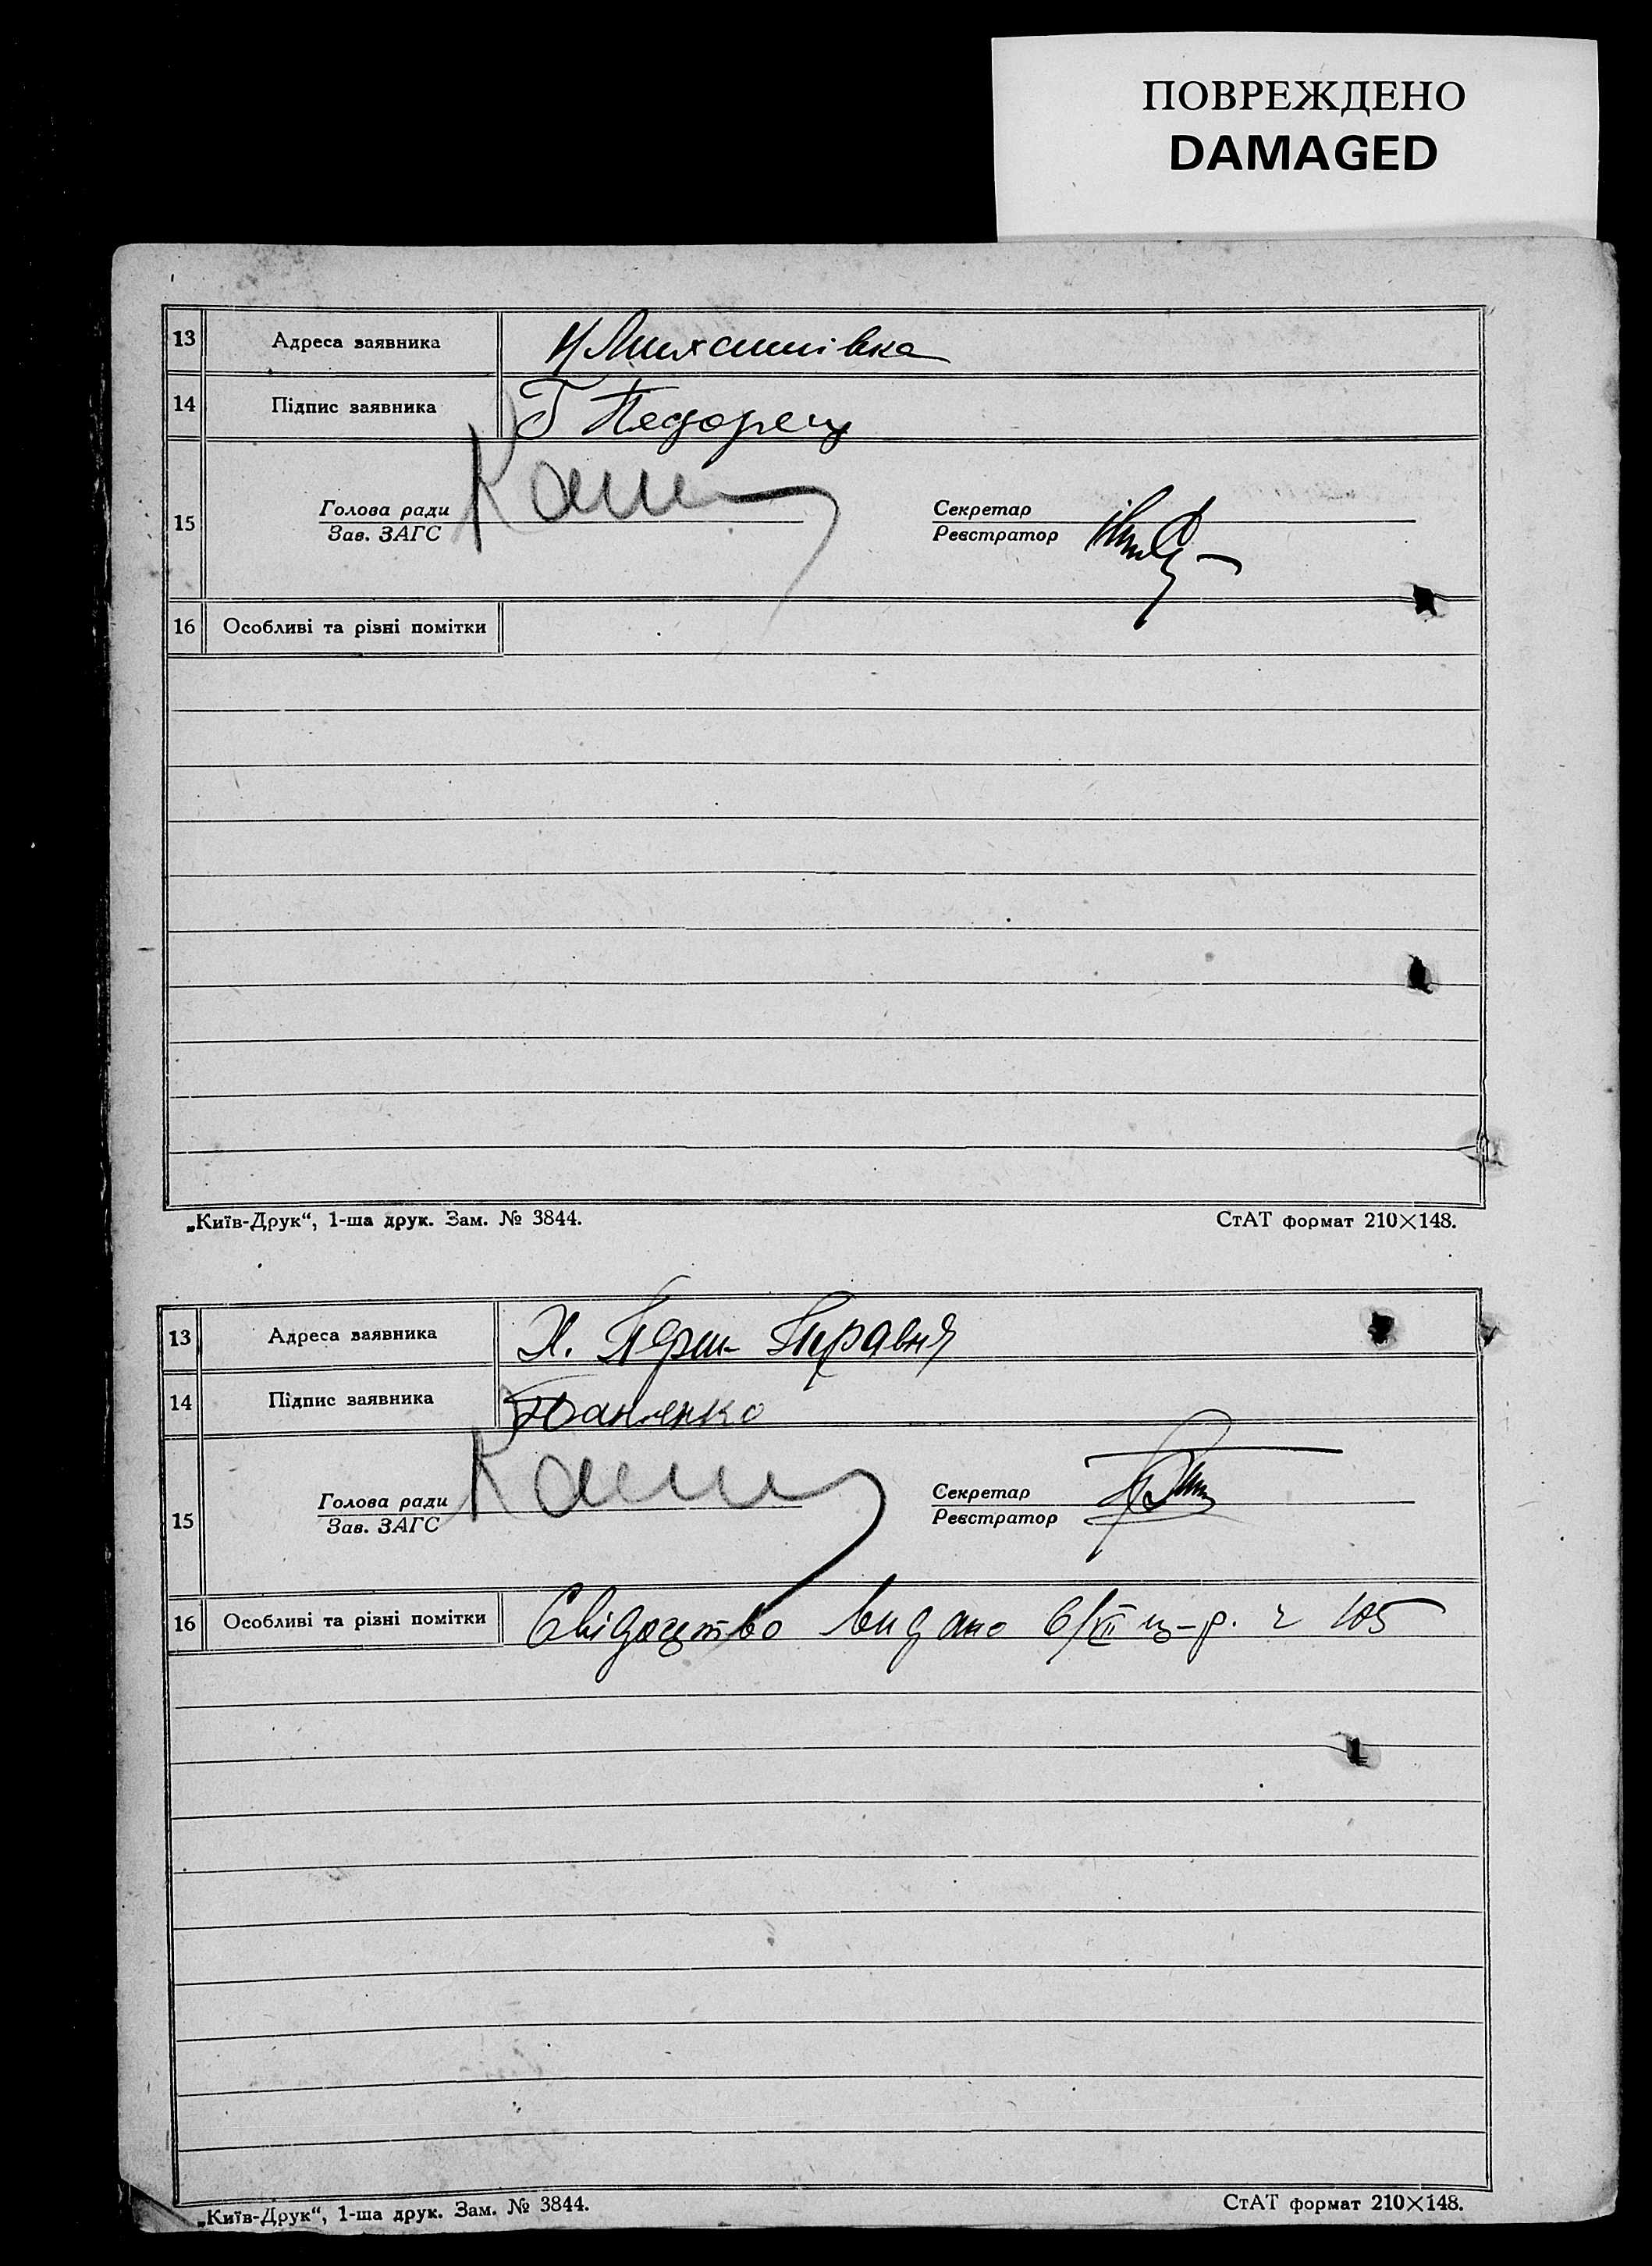 ПОВРЕЖДЕНО
DAMAGED
13 Адреса заявника
14 Підпис заявника Г Недорец
15 Голова ради Секретар
Зав. ЗАГС Реєстратор
16 Особливі та різні помітки
„Київ-Друк“, 1-ша друк. Зам. № 3844. СтАТ формат 210×148.
13 Адреса заявника Х. Перш Травня
14 Підпис заявника
15 Голова ради Секретар
Зав. ЗАГС Реєстратор
16 Особливі та різні помітки Свідоцтво видано 6/VII ц-р. 105
„Київ-Друк“, 1-ша друк. Зам. № 3844. СтАТ формат 210×148.